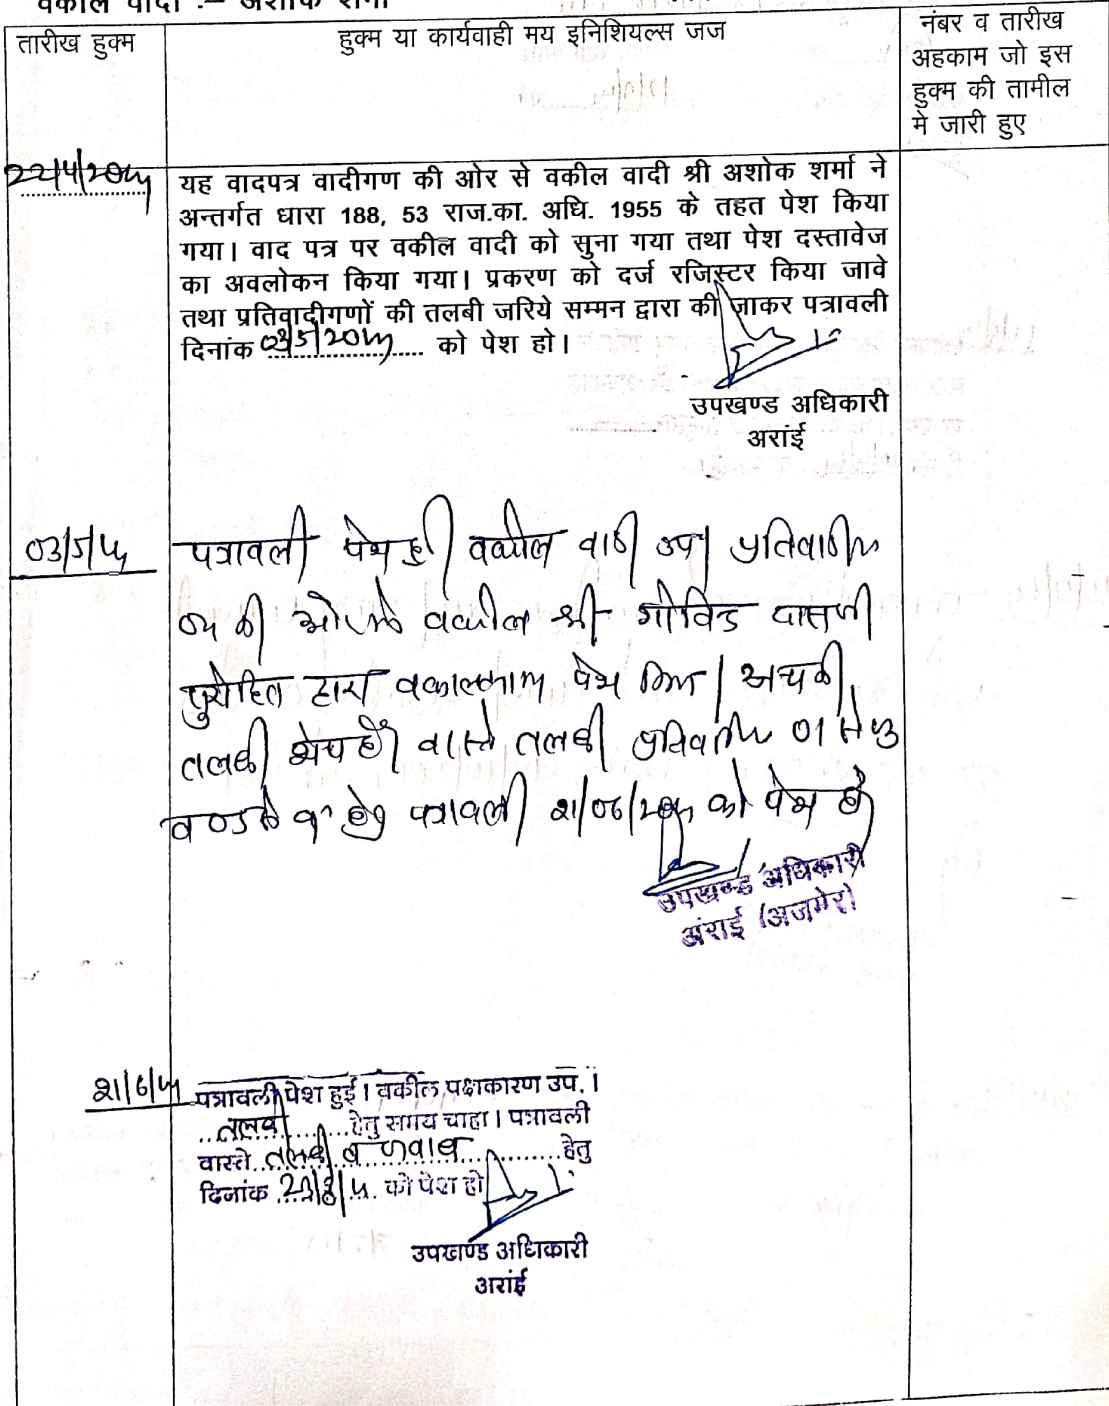 वकील वादी :– अशोक शर्मा
तारीख हुक्म
हुक्म या कार्यवाही मय इनिशियल्स जज
नंबर व तारीख
अहकाम जो इस
हुक्म की तामील
मे जारी हुए
22/4/20
यह वादपत्र वादीगण की ओर से वकील वादी श्री अशोक शर्मा ने
अन्तर्गत धारा 188, 53 राज.का. अधि. 1955 के तहत पेश किया
गया। वाद पत्र पर वकील वादी को सुना गया तथा पेश दस्तावेज
का अवलोकन किया गया। प्रकरण को दर्ज रजिस्टर किया जावे
तथा प्रतिवादीगणों की तलबी जरिये सम्मन द्वारा की जाकर पत्रावली
दिनांक को पेश हो।
उपखण्ड अधिकारी
अरांई
03/5/
पत्रावली पेश हुई वकील वादी उप
की ओर से वकील श्री गोविन्द दासजी
पुरोहित द्वारा वकालतनामा पेश किया।
तलबी शेष है। वास्ते तलबी 01 से
पत्रावली को पेश हो
उपखण्ड अधिकारी
अंराई (अजमेर)
21/6/
पत्रावली पेश हुई। वकील पक्षकारण उप.।
तलबी हेतु समय चाहा। पत्रावली
वास्ते तलबी व जवाब हेतु
दिनांक को पेश हो
उपखण्ड अधिकारी
अरांई